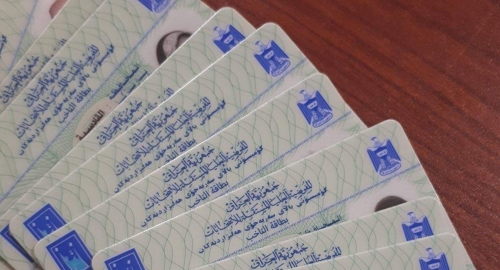 جمهورية العراق
المفوضية العليا المستقلة للانتخابات
كۆمسيۆنى بالاى سەربەخۆى هەلبژاردنەكان
بطاقة الناخب
جمهورية العراق
المفوضية العليا المستقلة للانتخابات
كۆمسيۆنى بالاى سەربەخۆى هەلبژاردنەكان
بطاقة الناخب
جمهورية العراق
المفوضية العليا المستقلة للانتخابات
كۆمسيۆنى بالاى سەربەخۆى هەلبژاردنەكان
بطاقة الناخب
جمهورية العراق
المفوضية العليا المستقلة للانتخابات
كۆمسيۆنى بالاى سەربەخۆى هەلبژاردنەكان
بطاقة الناخب
جمهورية العراق
المفوضية العليا المستقلة للانتخابات
كۆمسيۆنى بالاى سەربەخۆى هەلبژاردنەكان
بطاقة الناخب
جمهورية العراق